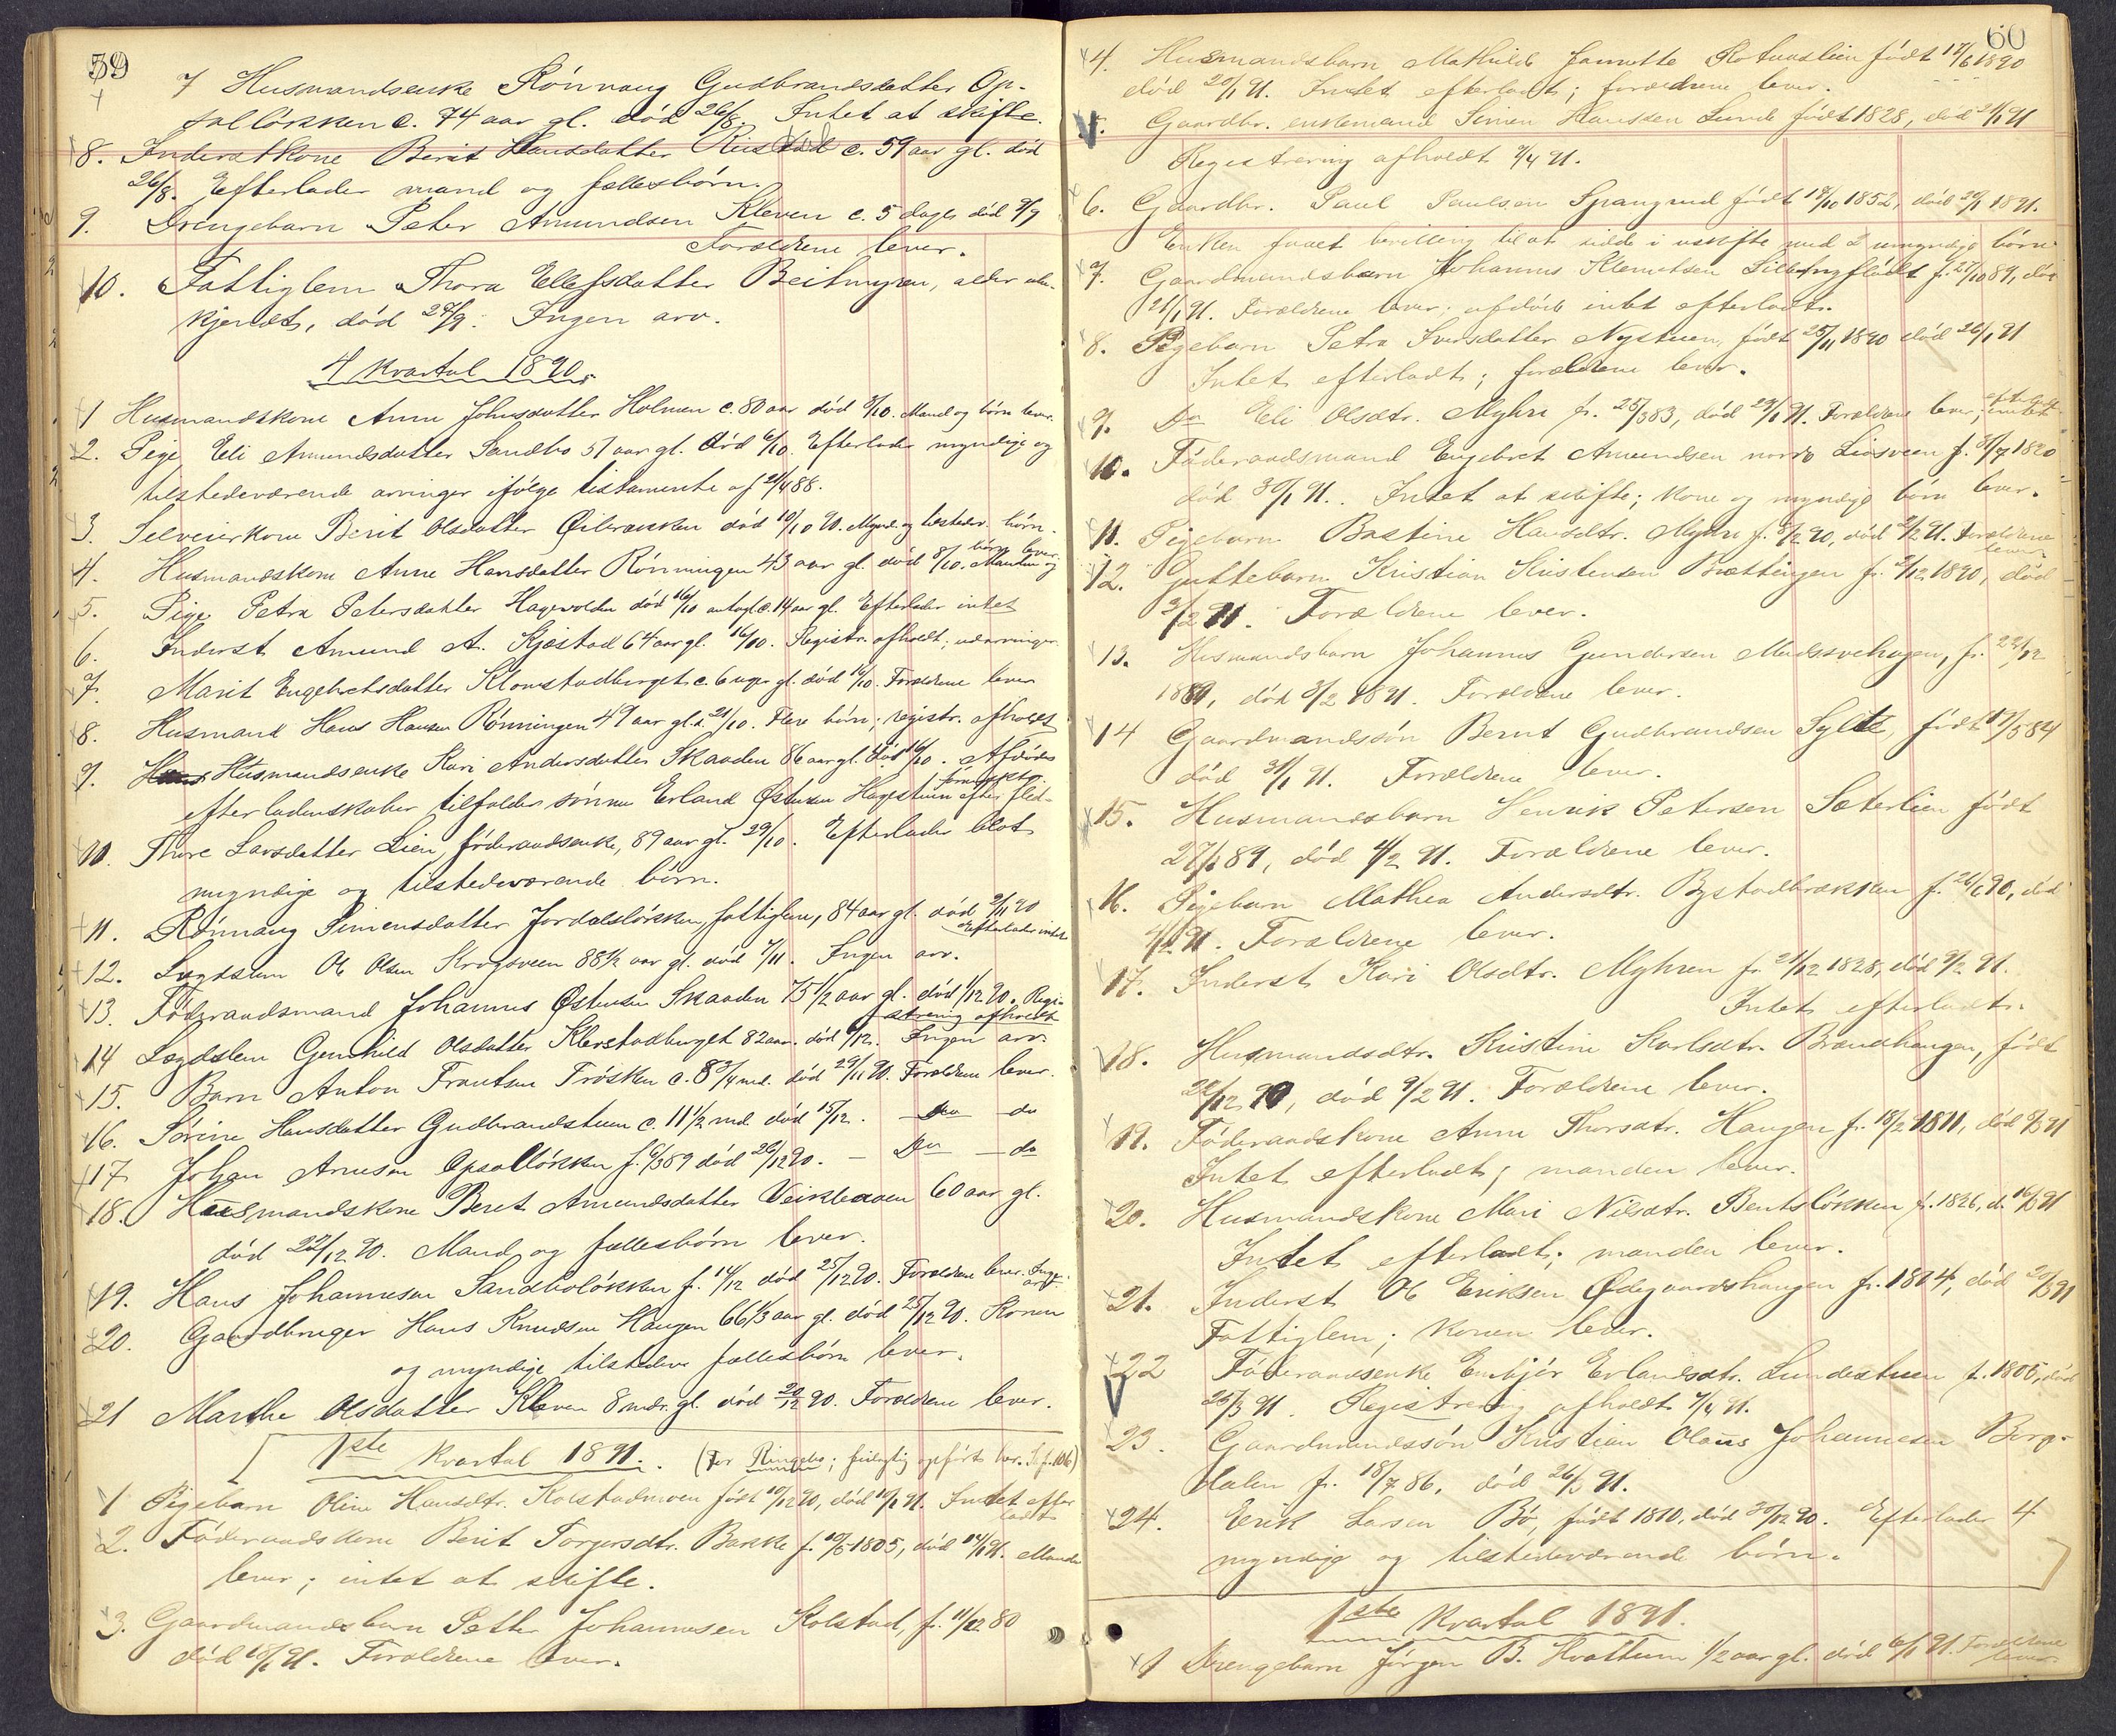 59
7 Husmandsenke Rönnaug Gudbrandsdatter Op-
sallökken c. 74 aar gl. död 26/8. Intet at skifte.
8. Inderstkone Berit Hansdatter Ruistad c. 59 aar gl. död
26/8. Efterlader mand og fællesbörn.
9. Drengebarn Peter Amundsen Kleven c. 5 dage död 9/9
Forældrene lever.
10. Fattiglem Thora Ellefsdatter Beitmyren, alder ube-
kjendt, död 27/9. Ingen arv.
4 kvartal 1890.
1 Husmandskone Anne Johnsdatter Holmen c. 80 aar död 3/10. Mand og börn lever.
2. Pige Eli Amundsdatter Sandbo 51 aar gl. död 6/10. Efterlader myndige og
tilstedeværende arvinger ifölge testamente af 21/4 88.
3. Selveierkone Berit Olsdatter död 10/10 90. Mynd. og tilstedev. börn.
4. Husmandskone Anne Hansdatter Rönningen 43 aar gl. död 8/10. Manden og
börn lever.
5. Pige Petra Petersdatter Hagevolden död 16/10 antagl. c. 14 aar gl. Efterlader intet
6. Inderst Amund A. Kjæstad 64 aar gl. 16/10. Registr. afholdt; udarvinger.
7. Marit Engebretsdatter Klomstadberget c. 6 uger gl. död 16/10. Forældrene lever
8. Husmand Hans Hansen Rönningen 49 aar gl. d. 21/10. Flere börn; registr. afholdt
9. Husmandsenke Kari Andersdatter Skaaden 86 aar gl. död 16/10. Afdödes
efterladenskaber tilfalder sönnen Erland Östensen Hagestuen efter fled-
föringskontr.
10. Thore Larsdatter Lien, föderaadsenke, 89 aar gl. 29/10. Efterlader blot
myndige og tilstedeværende börn.
11. Rönnaug Simensdatter Jordalslökken, fattiglem, 84 aar gl. död 2/11 90
Efterlader intet
12. Lægdslem Ole Olsen Krogsveen 88 1/2 aar gl. död 7/11. Ingen arv.
13. Föderaadsmand Johannes Østensen Skaaden 75 1/2 aar gl. död 1/12 90. Regi-
strering afholdt
14 Lægdslem Gunhild Olsdatter Klevstadberget 82 aar. död 9/12. Ingen arv.
15. Barn Anton Frantsen Trösken c. 8 3/4 md. död 29/11 90. Forældrene lever.
16. Sörine Hansdatter Gudbrandstuen c. 11 1/2 md. död 15/12. — Do — do
17 Johan Arnesen Opsallökken f. 6/3 89 död 26/12 90. — Do — do
18. Husmandskone Beret Amundsdatter Veiklevaaen 60 aar gl.
död 22/12 90. Mand og fællesbörn lever.
19. Hans Johannesen Sandbolökken f. 14/12 död 25/12 90. Forældrene lever. Ingen
arv.
20. Gaardbruger Hans Knudsen Haugen 66 1/3 aar gl. död 25/12 90. Konen
og myndige tilstedev. fællesbörn lever.
21 Marthe Olsdatter Kleven 8 mdr. gl. död 20/12 90. Forældrene lever.
1ste kvartal 1891. (For Ringebo; feilagtig opfört her. Se f. 106)
1 Pigebarn Oline Hansdtr. Kolstadmoen födt 10/12 90, död 10/1 91. Intet efter
ladt
2. Föderaadskone Berit Torgersdtr. Bakke f. 10/5 1805, död 14/1 91. Manden
lever; intet at skifte.
3. Gaardmandsbarn Petter Johannesen Kolstad, f. 11/12 80
död 18/1 91. Forældrene lever.
60
4. Husmandsbarn Mathilde Jannette födt 17/6 1890
död 20/1 91. Intet efterladt; forældrene lever.
5. Gaardbr. enkemand Simen Hanssen Lunde födt 1828, död 21/1 91
Registrering afholdt 7/4 91.
6. Gaardbr. Paul Paulsen Sprangrud födt 18/10 1852, död 20/1 1891.
Enken faaet bevilling til at sidde i uskifte med 2 umyndige börn
7. Gaardmandsbarn Johannes Klemetsen f. 27/10 89, död
21/1 91. Forældrene lever; afdöde intet efterladt.
8. Pigebarn Petra Iversdatter Nystuen, födt 25/11 1890 död 26/1 91
Intet efterladt; forældrene lever.
9. Do Eli Olsdtr. Myhre f. 25/3 83, död 29/1 91. Forældrene lever; intet
efterladt
10. Föderaadsmand Engebret Amundsen nordre Liosveen f. 31/7 1820
död 30/1 91. Intet at skifte; kone og myndige börn lever.
11. Pigebarn Bastine Hansdtr. Myhre f. 8/12 90, död 2/2 91. Forældrene
lever
12. Guttebarn Kristian Kristensen Brættingen f. 2/12 1890, död
3/2 91. Forældrene lever.
13. Husmandsbarn Johannes Gundersen Madsvehagen, f. 22/12
1889, död 3/2 1891. Forældrene lever.
14 Gaardmandssön Bernt Gudbrandsen Sylte, födt 17/5 84
död 31/1 91. Forældrene lever.
15. Husmandsbarn Henrik Petersen Sæterlien födt
27/1 89, död 4/2 91. Forældrene lever.
16. Pigebarn Mathea Andersdtr. Bystadbrækken f. 26/6 90, död
4/2 91. Forældrene lever.
17. Inderst Kari Olsdtr. Myhren f. 21/12 1828, död 9/2 91.
Intet efterladt.
18. Husmandsdtr. Kristine Karlsdtr. Brændhaugen, födt
22/12 90, död 9/2 91. Forældrene lever.
19. Föderaadskone Anne Thorsdtr. Haugen f. 18/2 1811, död 9/3 91
Intet efterladt; manden lever.
20. Husmandskone Mari Nilsdtr. Bentslökken f. 1826, d. 16/3 91
Intet efterladt; manden lever.
21. Inderst Ole Eriksen Ødegaardshaugen f. 1804, död 20/3 91
Fattiglem; konen lever.
22 Föderaadsenke Embjör Erlandsdtr. Lundestuen f. 1805, död
25/3 91. Registrering afholdt 7/4 91.
23. Gaardmandssön Kristian Olaus Johannesen Borg-
dalen f. 18/7 86, död 26/3 91.
24. Erik Larsen Bö, födt 1810, död 30/12 90. Efterlader 4
myndige og tilstedeværende börn.
1ste kvartal 1891.
1 Drengebarn Jörgen B. Hvattum 1/2 aar gl. död 6/1 91. Forældrene
lever